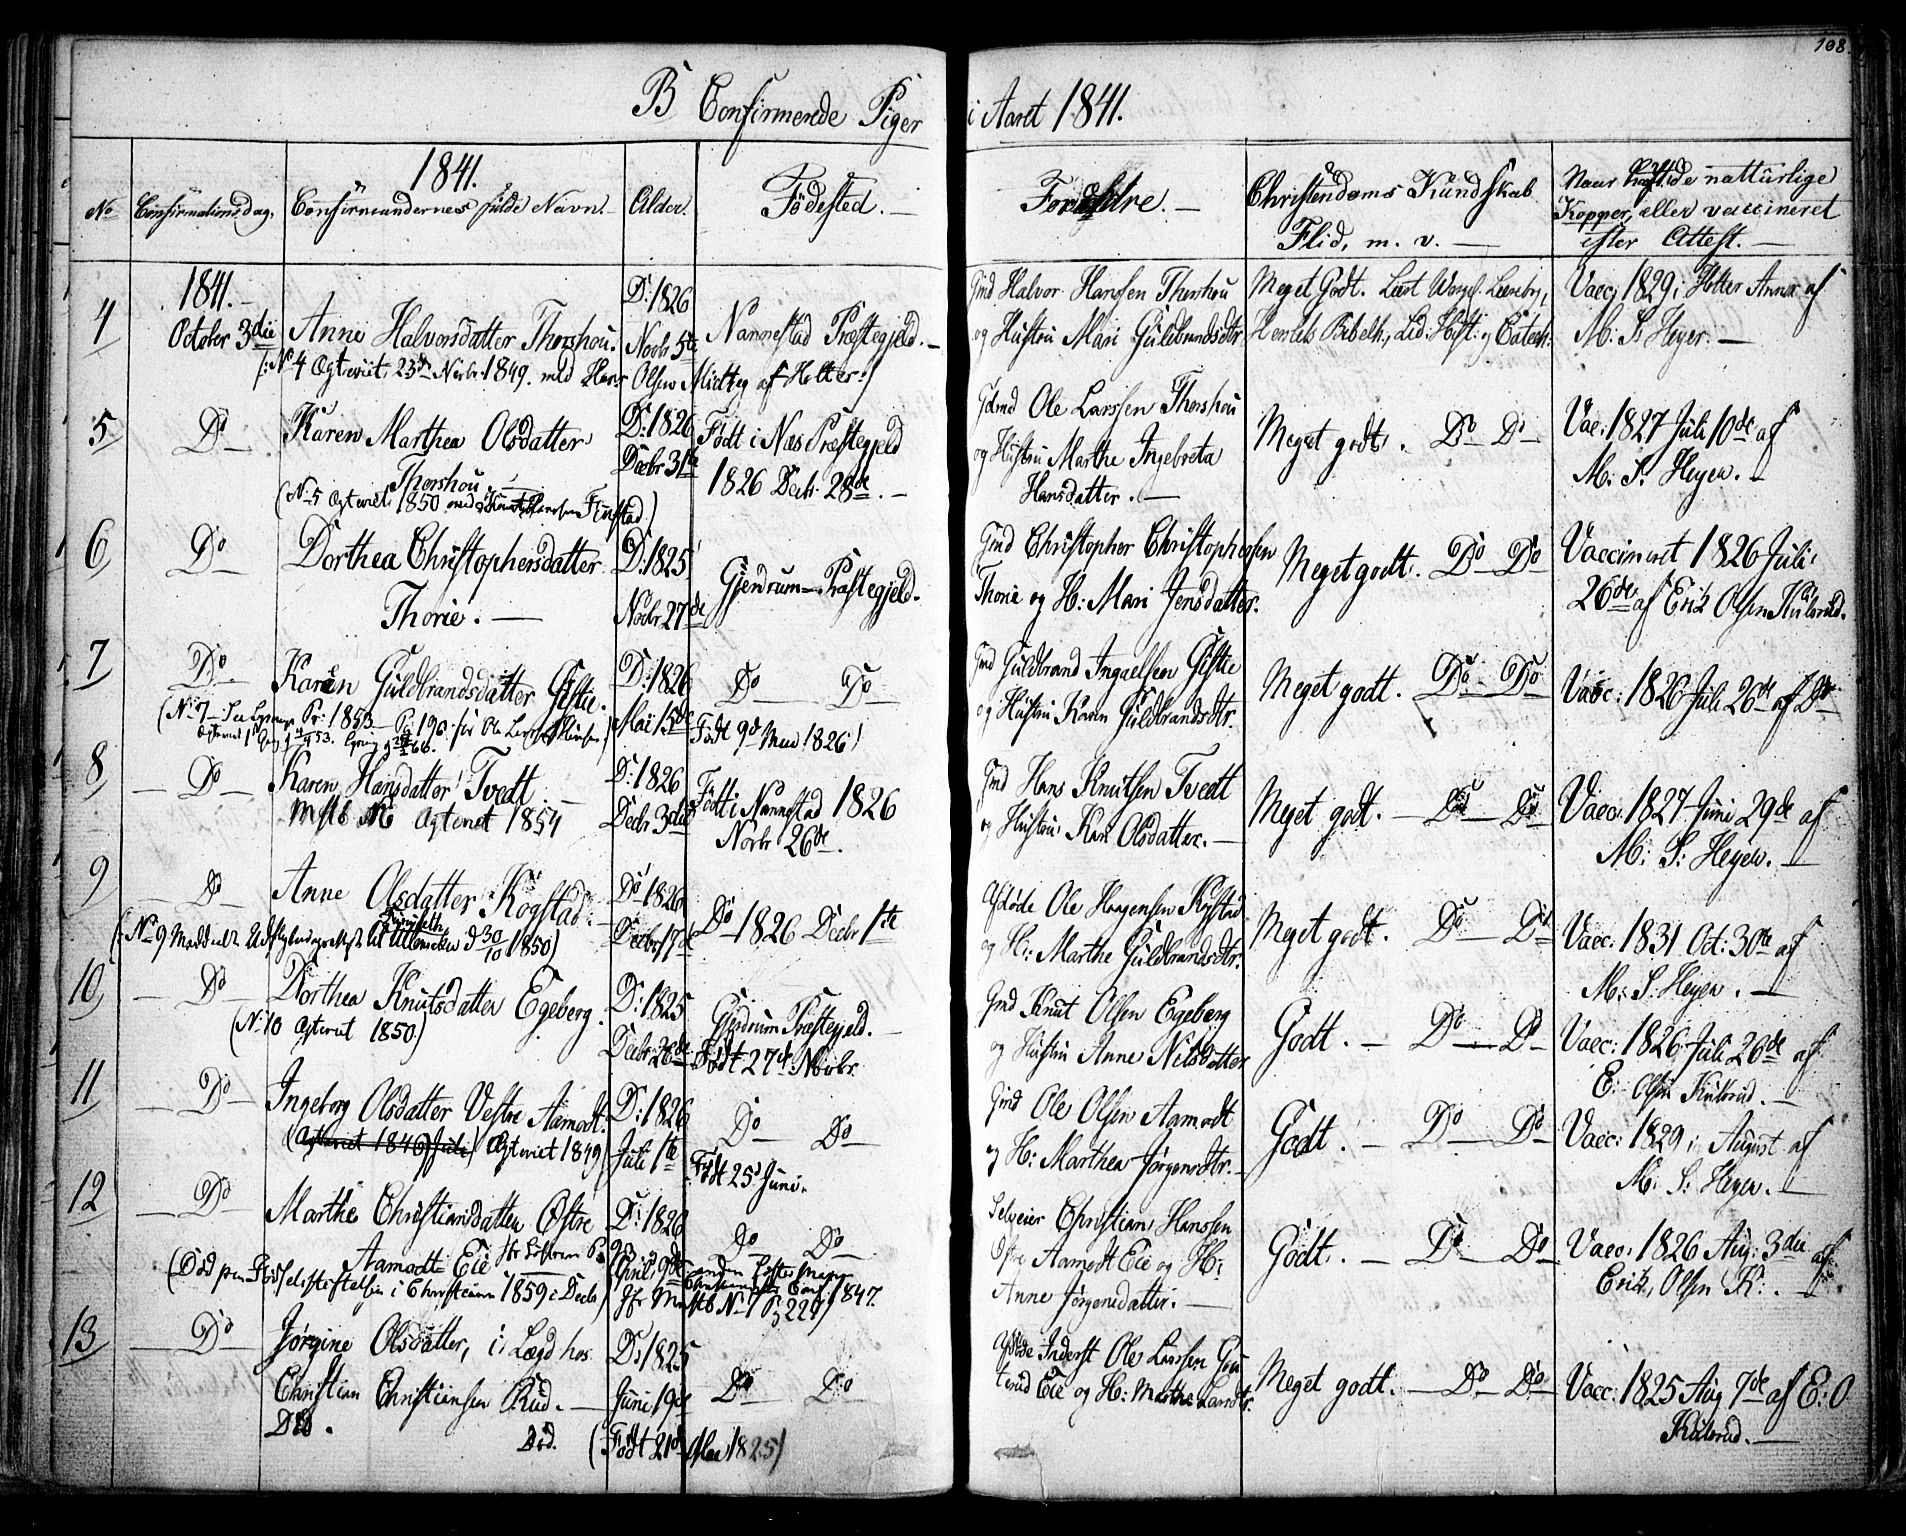 108.
B Confirmerede Piger i Aaret 1841.
1841.
No Confirmationsdag. Confirmandernes fulde Navn. Alder. Födested. Forældre. Christendoms Kundskab Flid, m. v. Naar havt de naturlige Kopper, eller vaccineret efter Attest.
1841.
4 October 3die Anne Halvorsdatter Thorshou. D: 1826 Novbr 5te Nannestad Præstegjeld.
Gmd Halvor Hanssen Thorshou
og Hustru Mari Guldbrandsdtr
Meget Godt.
Vacc. 1829 i Holter Annex af
M. S. Heyer.
(: No 4 Egteviet 23de Novbr 1849. med Hans Olsen Midteg af Holter :)
5 Do Karen Marthea Olsdatter
Thorshou
D: 1826 Decbr 31te
Födt i Næs Præstegjeld
1826 Decb. 28de.
Gdmd Ole Larssen Thorshou
og Hustru Marthe Ingebreta
Hansdatter.
Meget godt. Do Do
Vac: 1827 Juli 10de af
M: S. Heyer.
(No 5 Egteviet 1850 med Finstad)
6 Do Dorthea Christophersdatter
Thorie.
D: 1825 Novbr 27de
Gjerdrum Præstegjeld.
Gmd Christopher Christophersen
Thorie og H: Mari Jensdatter.
Meget godt. Do Do
Vaccineret 1826 Juli
26de af Erik Olsen Kulsrud.
7 Do Karen Guldbrandsdatter Gistie.
D: 1826 Mai 15de
Do Do
Födt 9de Mai 1826
Gmd Guldbrand Ingaelsen Gistie
og Hustru Karen Guldbrandsdtr.
Meget godt. Do Do
Vacc: 1826 Juli 26de af Do
(No 7 1853 Pag 190
8 Do Karen Hansdatter Tvedt
Egteviet 1854
D: 1826 Decbr 3die
Födt i Nannestad 1826
Novbr 26de.
Gmd Hans Knutsen Tvedt
og Hustru Kari Olsdatter.
Meget godt. Do Do
Vacc. 1827 Juni 29de af
M: S: Heyer.
9 Do Anne Olsdatter Kogstad.
Do 1826 Decbr 17de
Do 1826 Decbr 1te
Afdöde Ole Haagensen Kogstad
og H: Marthe Guldbrandsdtr.
Meget godt. Do Do
Vacc: 1831 Oct: 30te af
M: S. Heyer.
(: No 9 Meddeelt Udflytningsattest til Ullensaker d 30/10 1850)
10 Do Dorthea Knutsdatter Egeberg.
D: 1825 Decbr 26de
Gjerdrum Præstegjeld.
Födt 27de Novbr.
Gmd Knut Olsen Egeberg
og Hustru Anne Nilsdatter
Godt. Do Do
Vacc: 1826 Juli 26de af
E: Olsen Kulsrud.
(No 10 Egteviet 1850)
11 Do Ingeborg Olsdatter Vestre Aamodt.
D: 1826 Juli 1te
Do Do
Födt 25de Juni.
Gmd Ole Olsen Aamodt
og H: Marthea Jörgensdtr.
Godt. Do Do
Vacc: 1829 i August af
M: S: Heyer.
(Egteviet 1846 Juli) Egteviet 1849)
12 Do Marthe Christiansdatter Östre
Aamodt Eie
D: 1826 April 9de
Do Do
Selveier Christian Hanssen
Östre Aamodt Eie og H:
Anne Jörgensdatter.
Godt. Do Do
Vacc: 1826 Aug: 3die af
Erik, Olsen K:
(Död paa Födselsstiftelsen i Christiania 1859 i Decbr) 1847.
No 1 P. 229)
13 Do Jörgine Olsdatter, i Lægd hos
Christian Christiansen Rud.
Död. Död.
D: 1825 Juni 19de
Do Do
(Födt 21de Mai 1825)
Afdöde Inderst Ole Larssen
Eie og H: Marthe Larsdtr.
Meget godt. Do Do
Vacc: 1825 Aug 7de af E: O
Kulsrud.